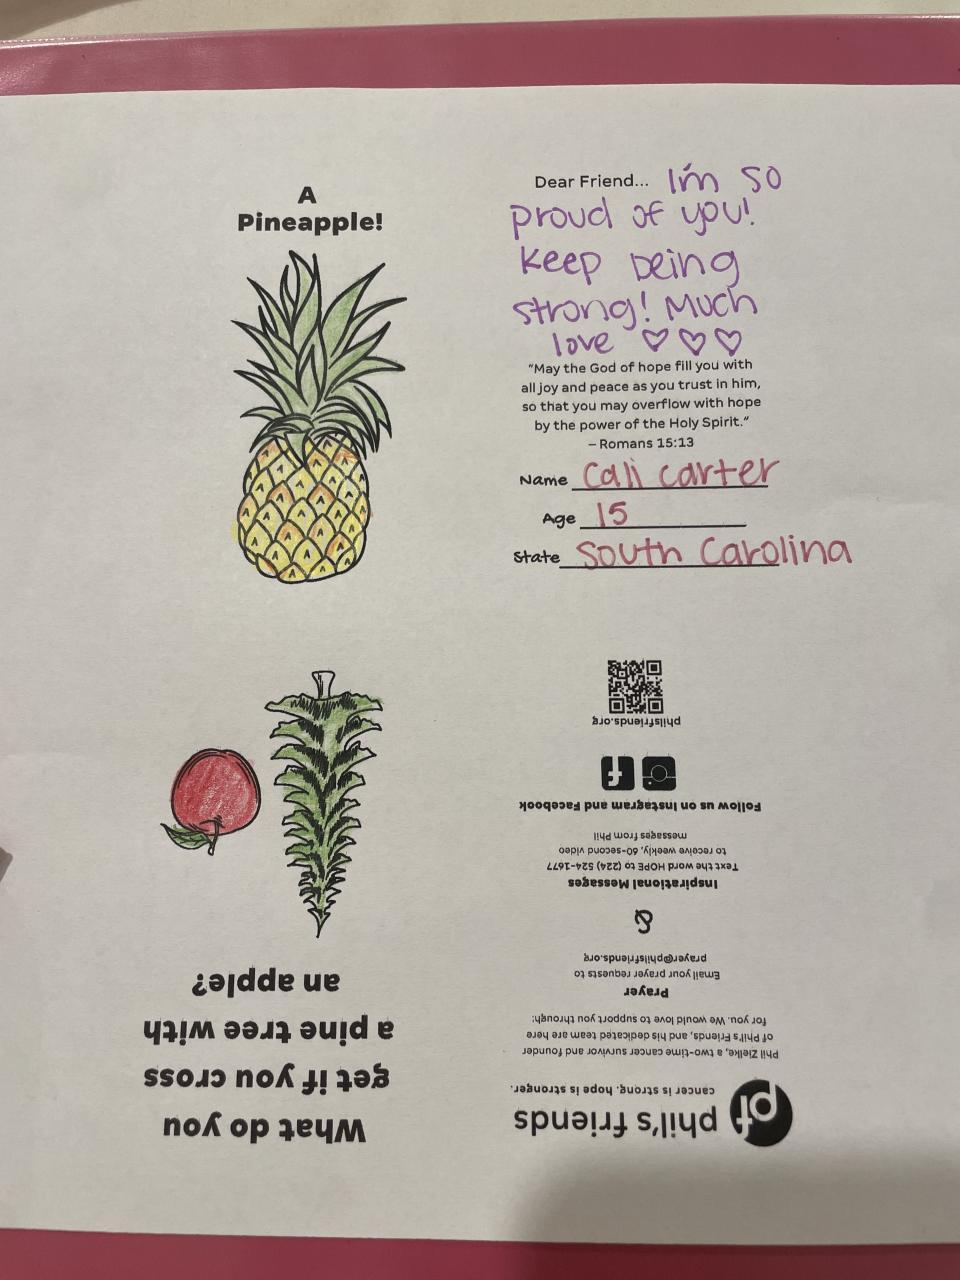 A
Pineapple!
Dear Friend... I'm so
proud of you!
Keep being
strong! Much
love ♡♡♡
"May the God of hope fill you with
all joy and peace as you trust in him,
so that you may overflow with hope
by the power of the Holy Spirit."
– Romans 15:13
Name Cali Carter
Age 15
State South Carolina
What do you
get if you cross
a pine tree with
an apple?
pf
phil's friends
cancer is strong. hope is stronger.
Phil Zielke, a two-time cancer survivor and founder
of Phil's Friends, and his dedicated team are here
for you. We would love to support you through:
Prayer
Email your prayer requests to
prayer@philsfriends.org
&
Inspirational Messages
Text the word HOPE to (224) 524-1677
to receive weekly, 60-second video
messages from Phil
Follow us on Instagram and Facebook
philsfriends.org